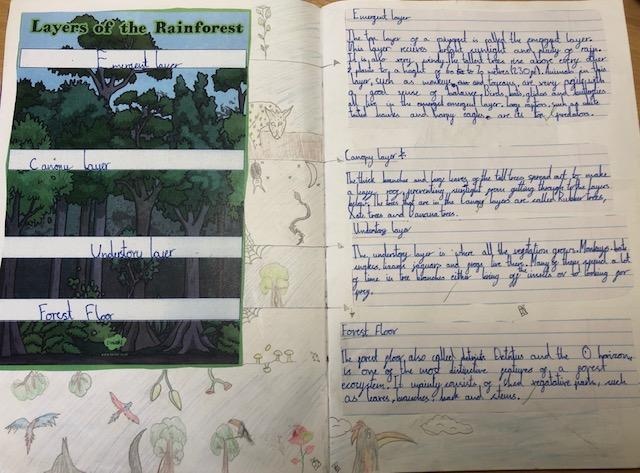 Layers of the Rainforest
Emergent layer
Canopy layer
Understory layer
Forest Floor
Emergent layer
The top layer of a is called the layer.
This layer recieves bright sunlight and plenty of rain.
It is also very windy, the tallest trees rise above every other
plants to a height of 70 meters (230 ft). Animals in this
layer, such as monkeys are very
a good sense of balance. Birds, bats, gliders and butterflies
all live in the layer. large raptors, such as white
hawks and harpy eagles are its top predators.
Canopy layer
The thick branches and large leaves of the tall trees spread out to make
a huge roof preventing sunlight from getting through to the layers
below. The trees that are in the Canopy layers are called Rubber trees,
Xate trees and Banana trees.
Understory layer
The understory layer is where all the vegetation grows. Monkeys, bats
snakes, lizards jaguars and frogs live there. Many of these spend a lot
of time in the branches either being off the insects or to looking for
prey.
Forest Floor
The forest floor, also called Detritus and the O horizon,
is one of the most distinctive features of a forest
ecosystem. It mainly consists of shed vegetative parts, such
as leaves, branches, bark and stems.